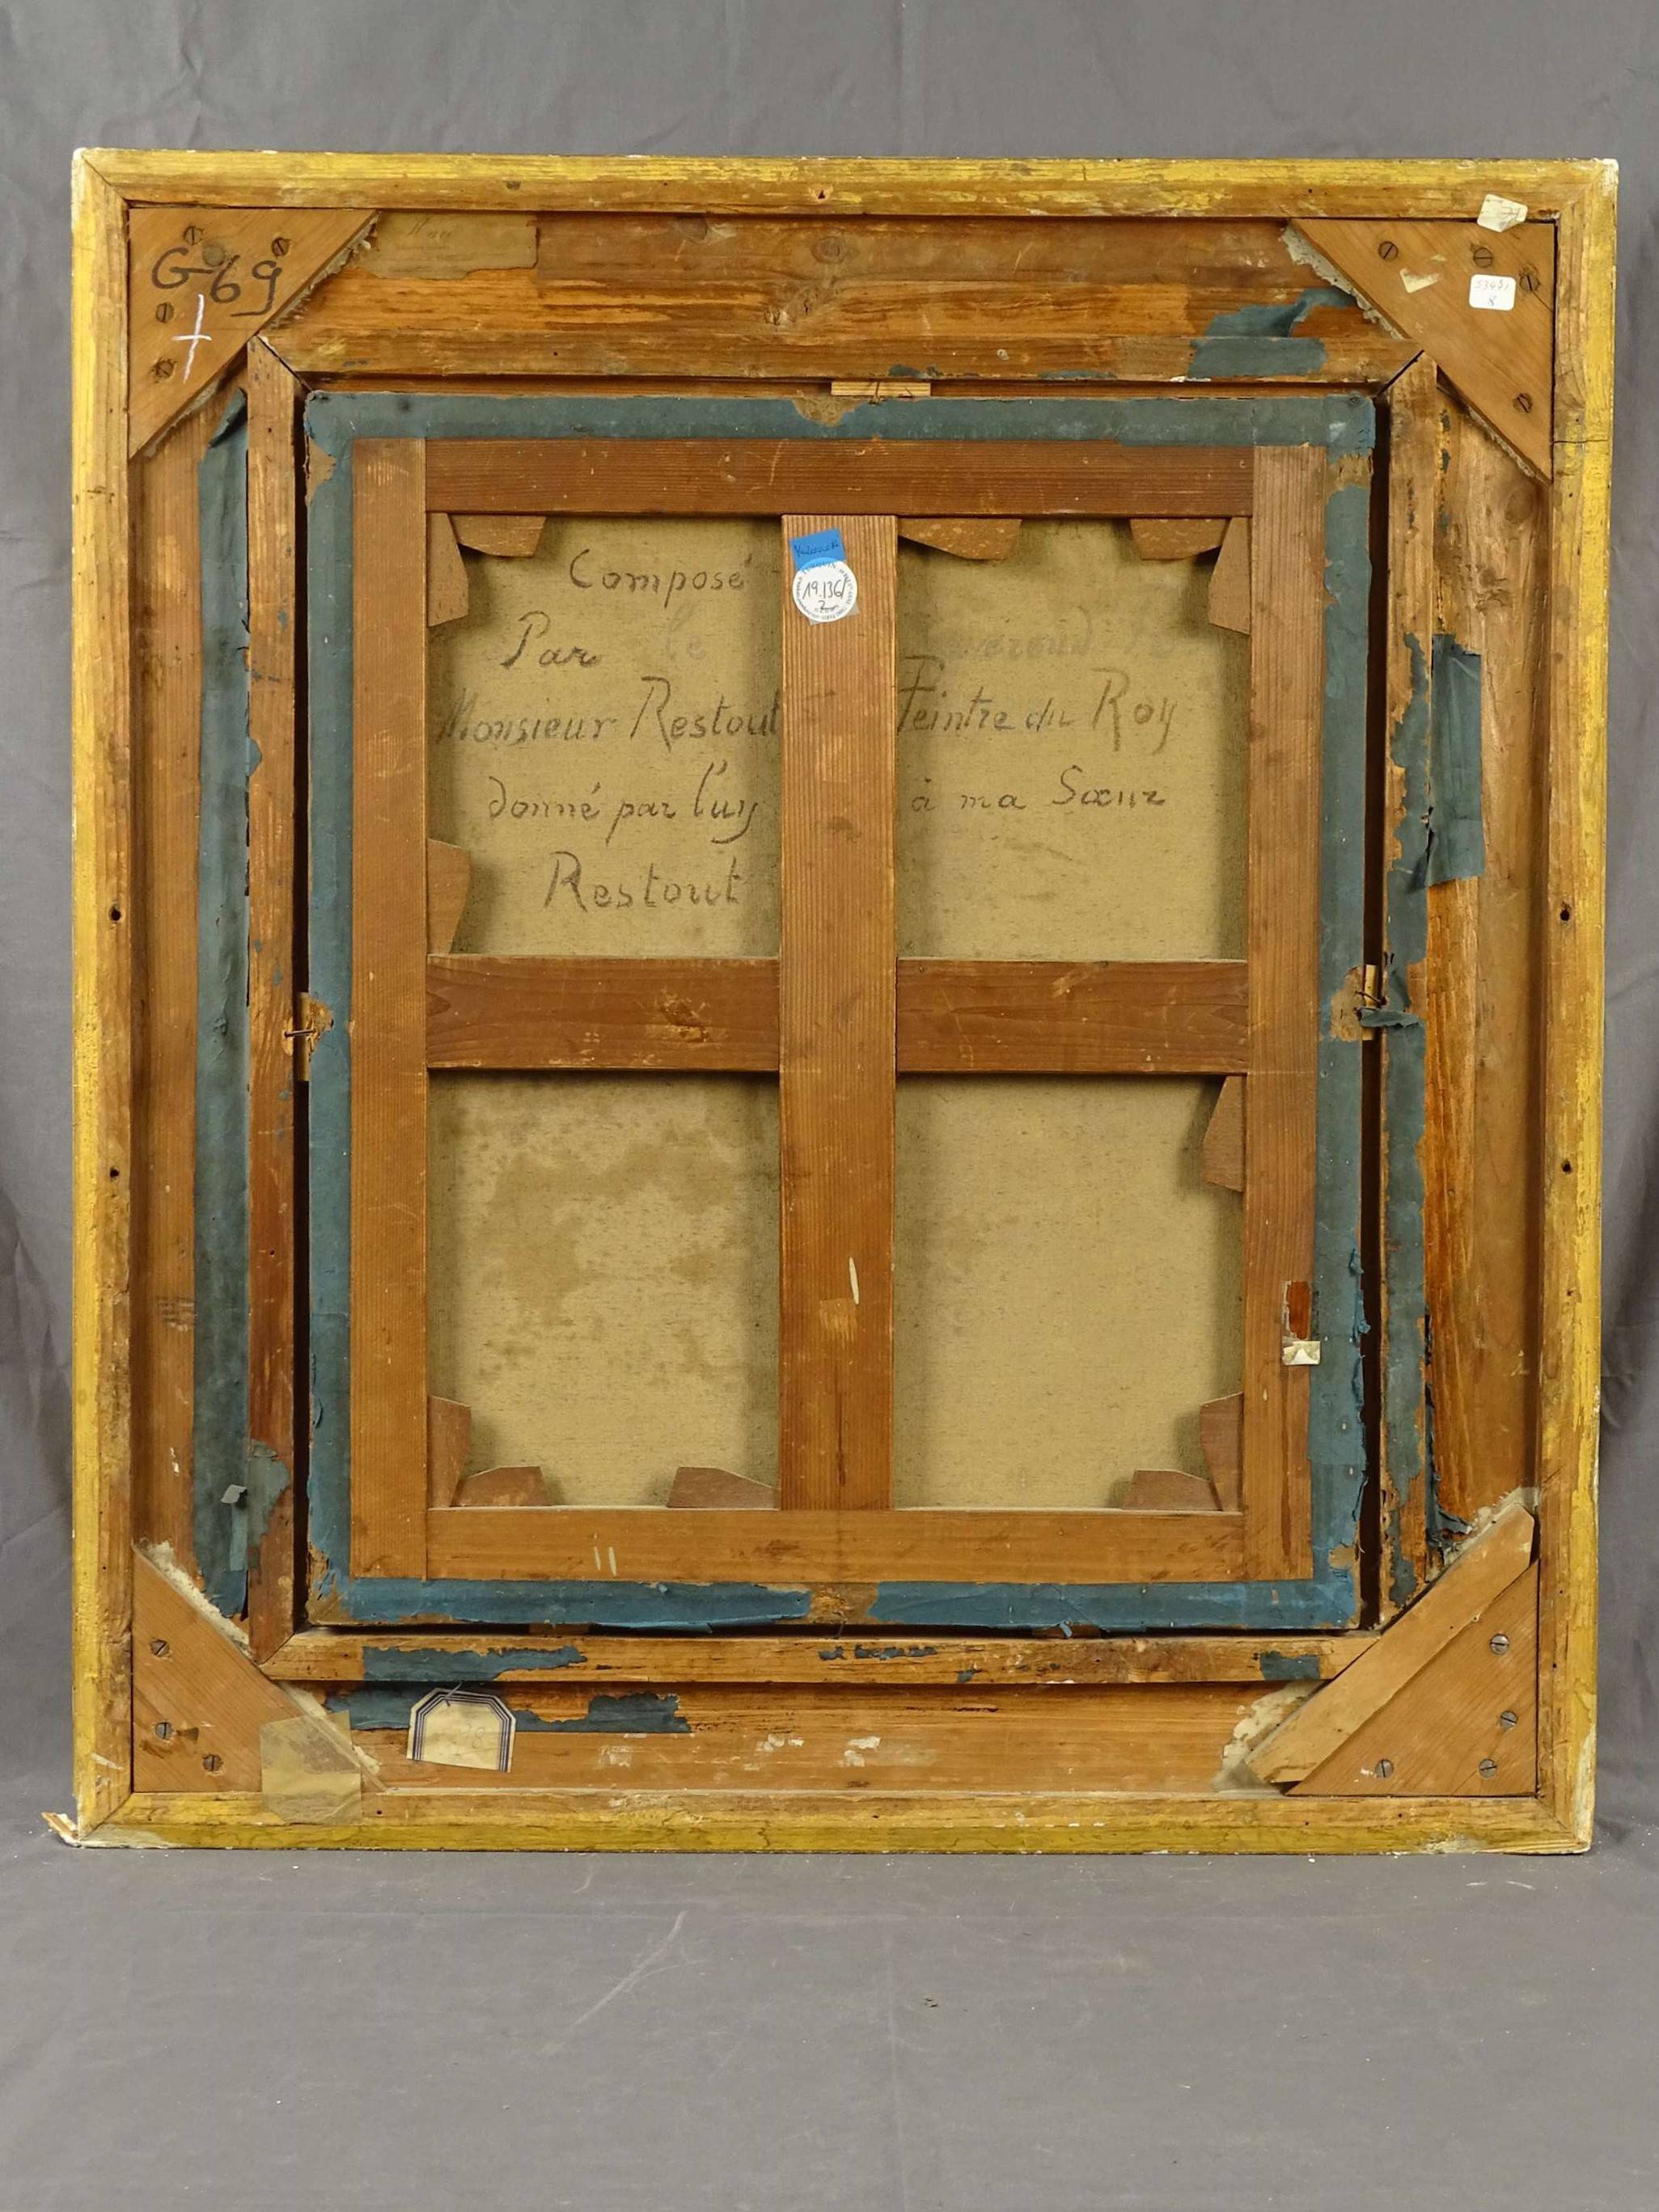 G 69
Composé
Par le
Monsieur Restout Peintre du Roy
donné par luy à ma Sœur
Restout
19.136/
2